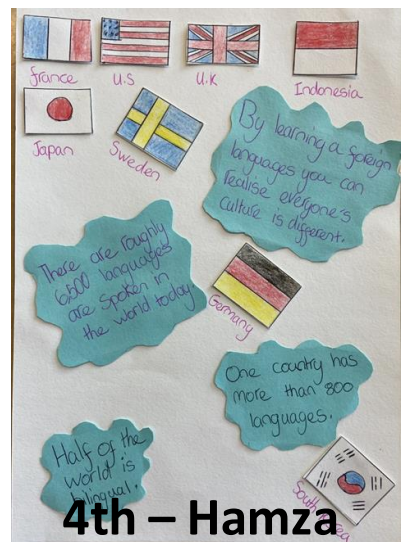 france
U.S
U.K
Indonesia
Japan
Sweden
By learning a foreign
languages you can
realise everyone's
culture is different.
There are roughly
6500 languages
are spoken in
the world today.
Germany
One country has
more than 800
languages.
Half of the
world is
bilingual.
South
4th – Hamza